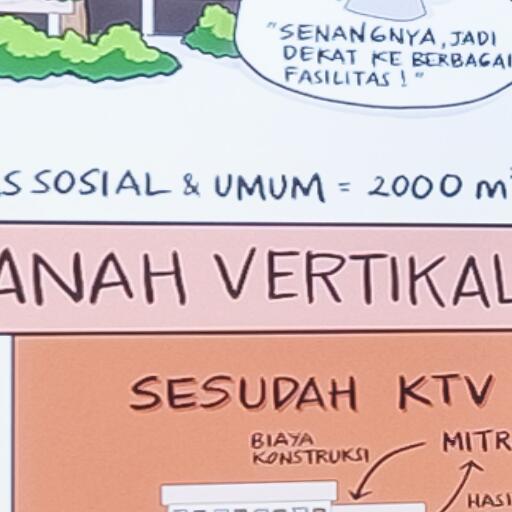 "SENANGNYA, JADI
DEKAT KE BERBAGAI
FASILITAS!"
S SOSIAL & UMUM = 2000 m²
ANAH VERTIKAL
SESUDAH KTV
BIAYA
KONSTRUKSI
MITR
HASI